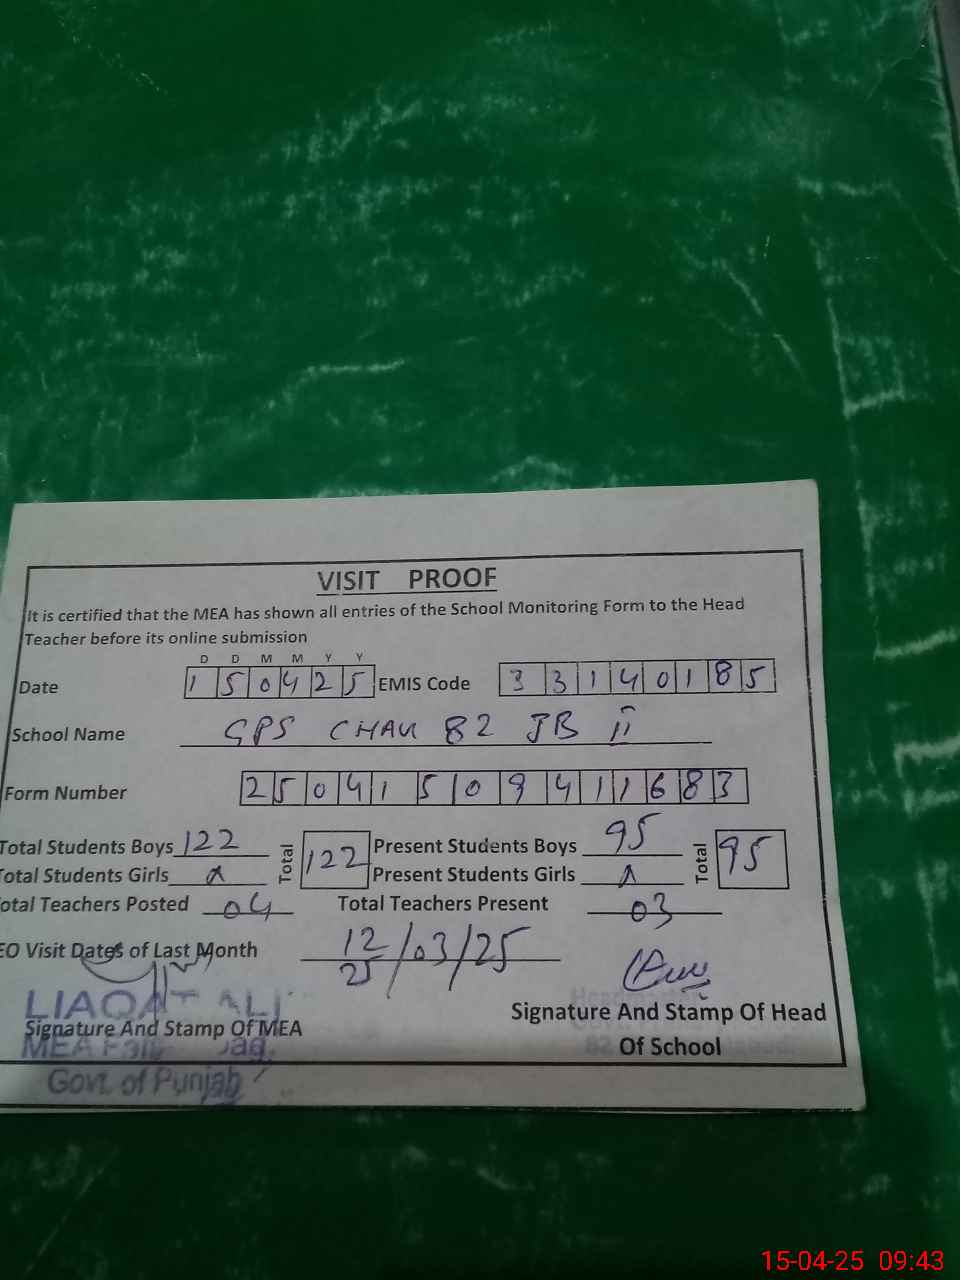 VISIT PROOF
It is certified that the MEA has shown all entries of the School Monitoring Form to the Head
Teacher before its online submission
D D M M Y Y
Date 150425 EMIS Code 33140185
School Name GPS CHAK 82 JB II
Form Number 25041509411683
Total Students Boys 122 Total 122 Present Students Boys 95 Total 95
Total Students Girls Present Students Girls
Total Teachers Posted 04 Total Teachers Present 03
EO Visit Dates of Last Month 12/25/03/25
LIAQAT ALI
Signature And Stamp Of MEA Signature And Stamp Of Head
MEA
Of School
Govt. of Punjab
15-04-25 09:43